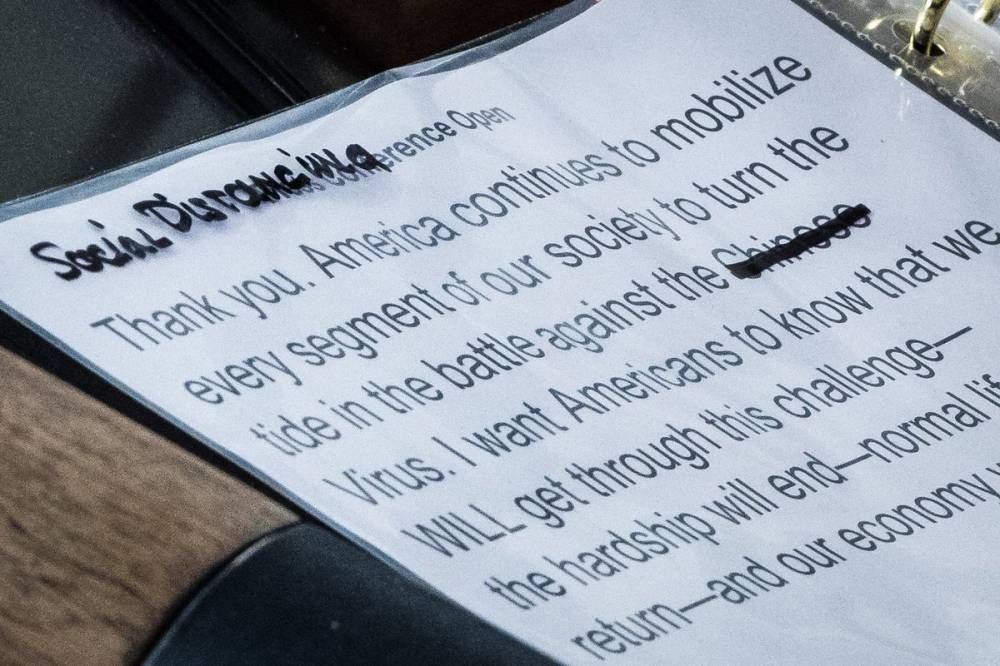 Social Distancing
erence Open
Thank you. America continues to mobilize
every segment of our society to turn the
tide in the battle against the Chinese
Virus. I want Americans to know that we
WILL get through this challenge—
the hardship will end—normal lif
return—and our economy